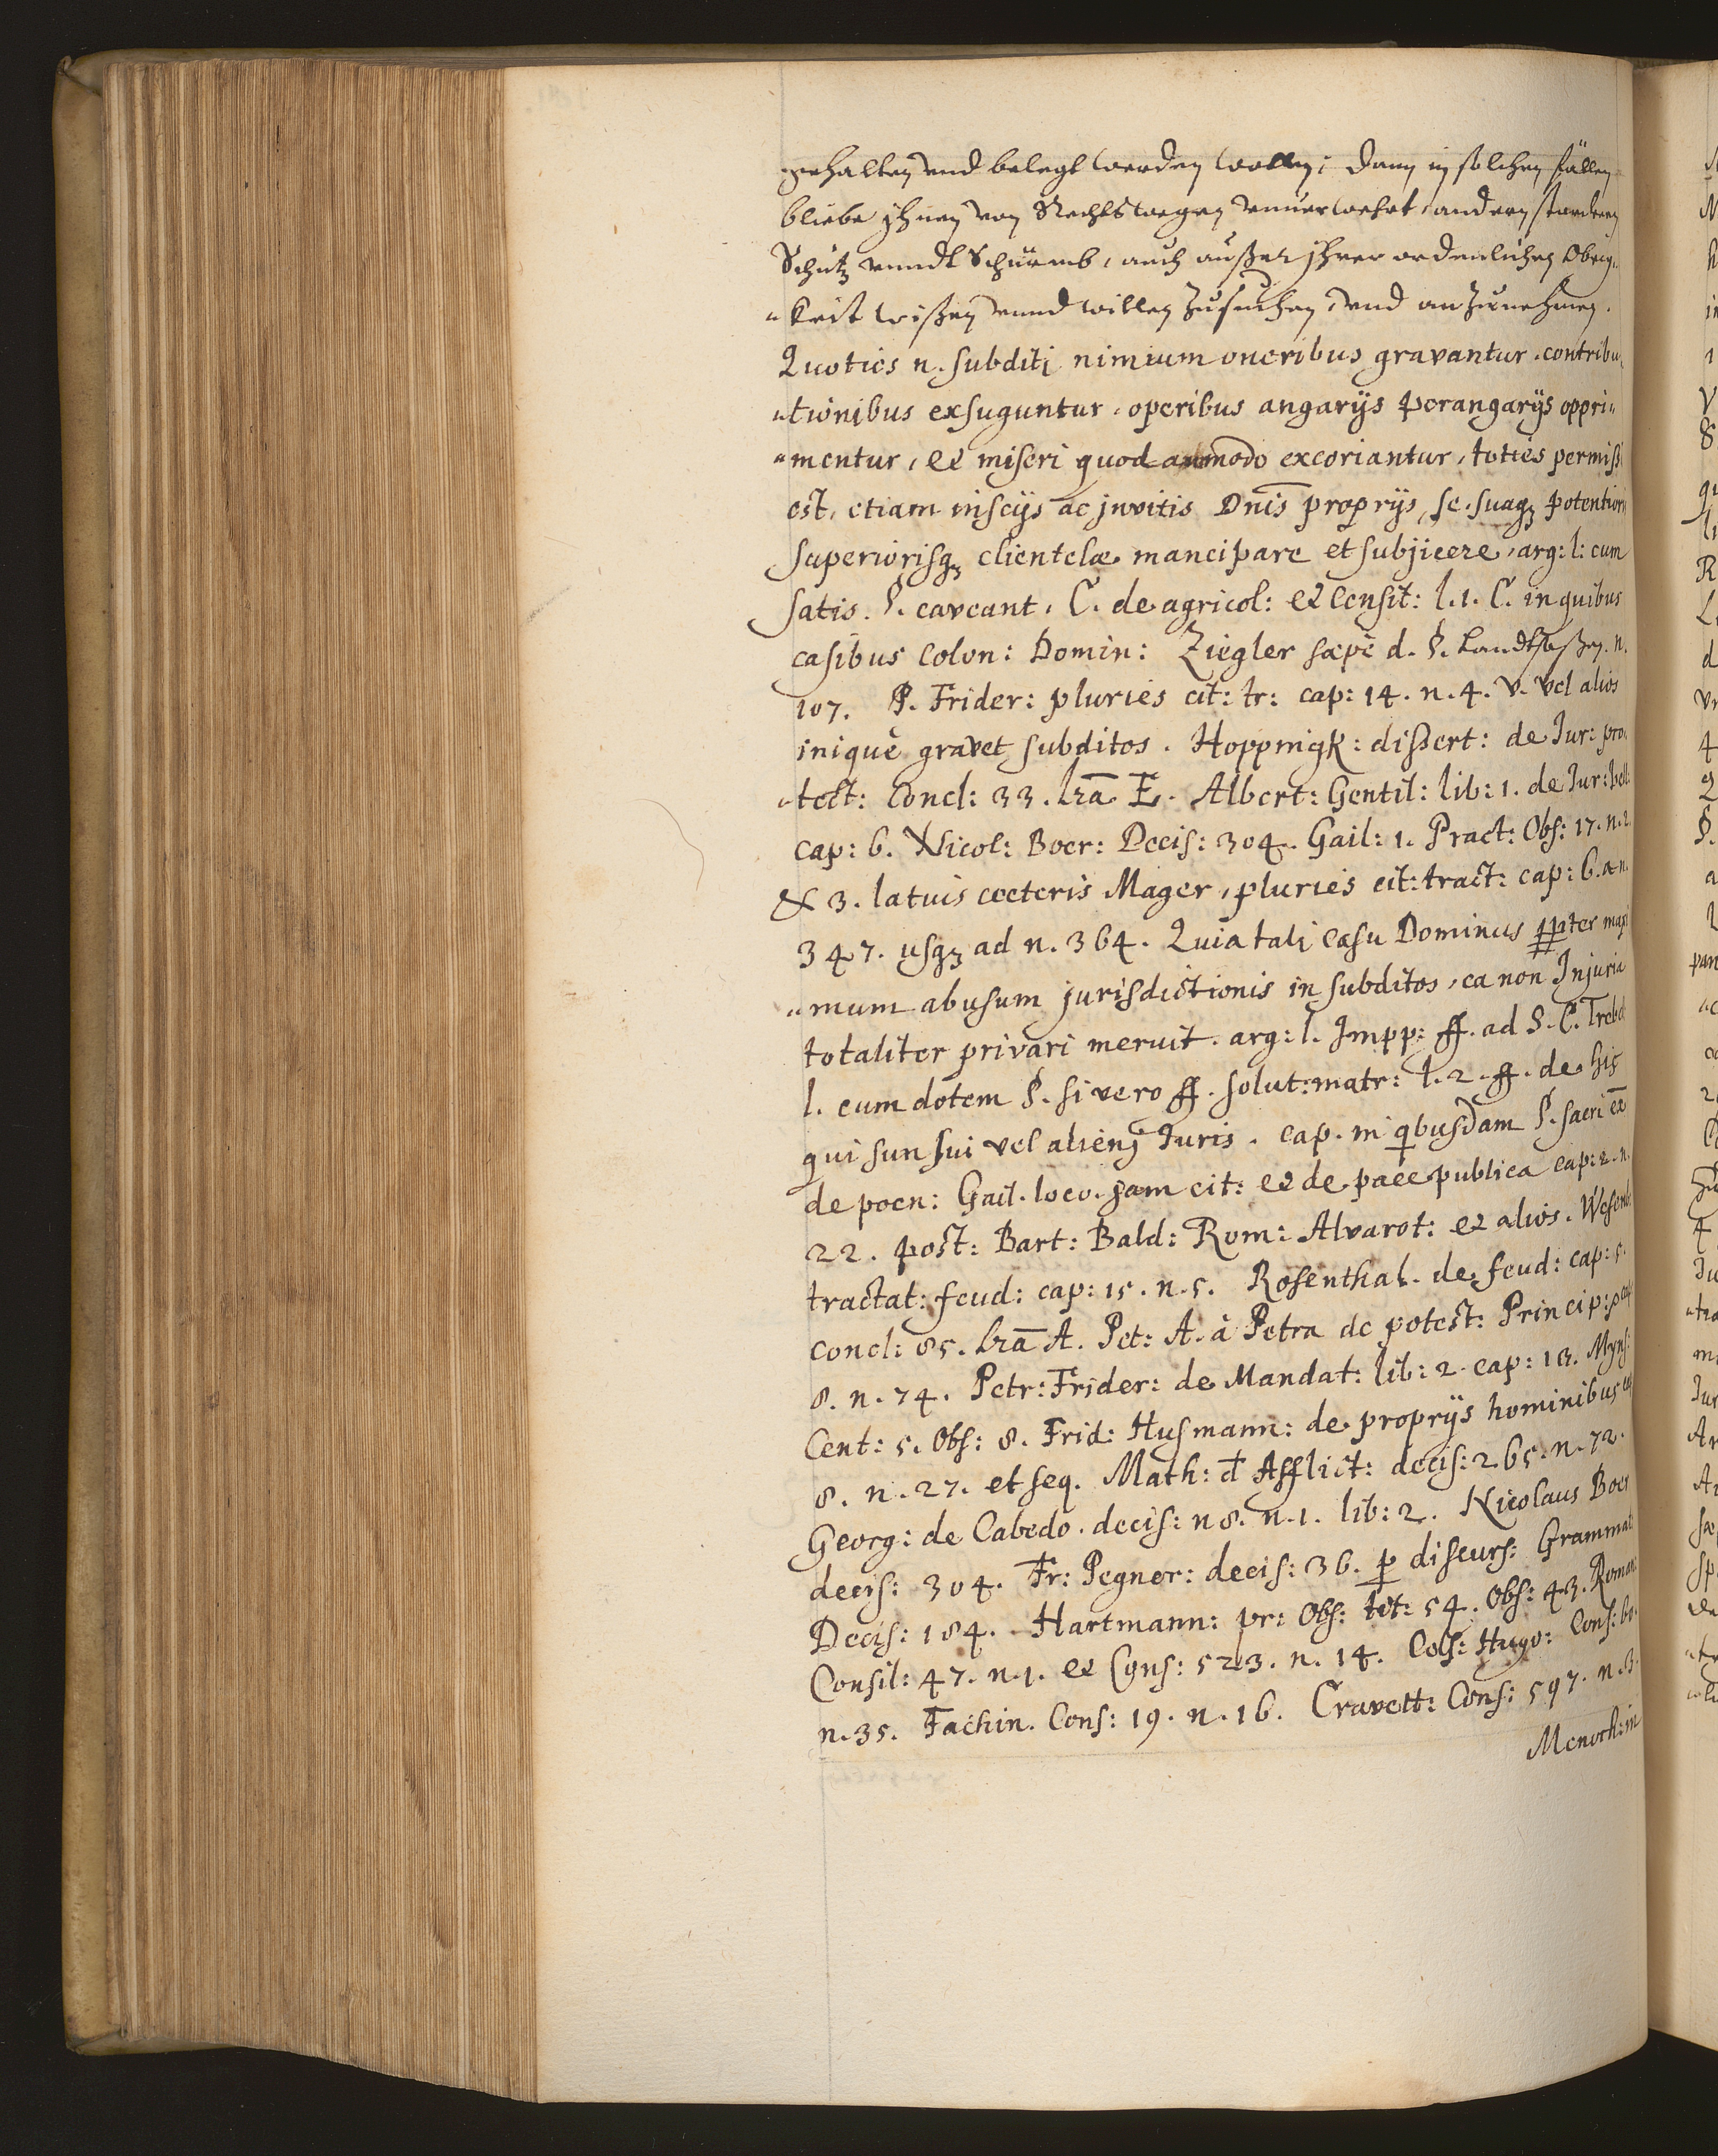 gehalten vnd belegt werden wollen; dann in solchen fällen
bliebe ihnen von Rechts wegen vnuerwehrt, andern
Schutz vnndt Schürmb, auch außer ihrer ordenlichen Obrig„
„keit wißen vnnd willen Zusuchen, vnd anzunehmen.
Quoties n. subditi nimium oneribus gravantur, contribu„
„tionibus exsuguntur, operibus angarijs perangarijs oppri„
„mentur, et miseri quod ammodo excoriantur, toties permiss
est, etiam insciis ac invitis Dnis proprijs, se suaqz potentiori
superiorisqz clientelæ mancipare et subjicere, arg: l: cum
satis. §. caveant. C. de agricol: et Censit: l. 1. C. in quibus
casibus Colon: Domin: Ziegler sæpè d. §. Landtsaßen. n.
107. P. Frider: pluries cit: tr: cap: 14. n. 4. v. vel alios
iniquè gravet subditos. Hoppingk: dissert: de Jur: pro„
„tect: Concl: 33. lrā E. Albert: Gentil: lib: 1. de Jur: bell:
cap: 6. Nicol: Boer: Decis: 304. Gail: 1. Pract: Obs: 17. n. 2.
& 3. latius cœteris Mager, pluries cit: tract: cap: 6. a n.
347. usqz ad n. 364. Quia tali casu Dominus ppter maxi„
„mum abusum jurisdictionis in subditos, ea non Injuria
totaliter privari meruit. arg: l. Impp: ff. ad S. C. Trebel
l. cum dotem §. si vero ff. solut: matr: l. 2. ff. de his
qui sun sui vel alienj Juris. cap. in qbusdam §. sacri ex
de poen: Gail. loco. jam cit: et de pace publica cap: 2. n.
22. post: Bart: Bald: Rom: Alvarot: et alios. Wesenb
tractat: feud: cap: 15. n. 5. Rosenthal. de feud: cap: 5.
concl: 85. lrā A. Pet: A. à Petra de potest: Princip: cap
8. n. 74. Petr: Frider: de Mandat: lib: 2. cap: 13. Myns:
Cent: 5. Obs: 8. Frid: Husmann: de proprijs hominibus cap
8. n. 27. et seq. Math: d Afflict: decis: 265. n. 72.
Georg: de Cabedo. decis: n 8. n. 1. lib: 2. Nicolaus Boer
decis: 304. Fr: Pegner: decis: 36. p discurs: Grammat
Decis: 184. Hartmann: pr: Obs: tit: 54. Obs: 43. Roman:
Consil: 47. n. 1. et Cons: 523. n. 14. Hugo: Cons: 60.
n. 35. Fachin. Cons: 19. n. 16. Cravett: Cons: 597. n. 3.
Menoch: in